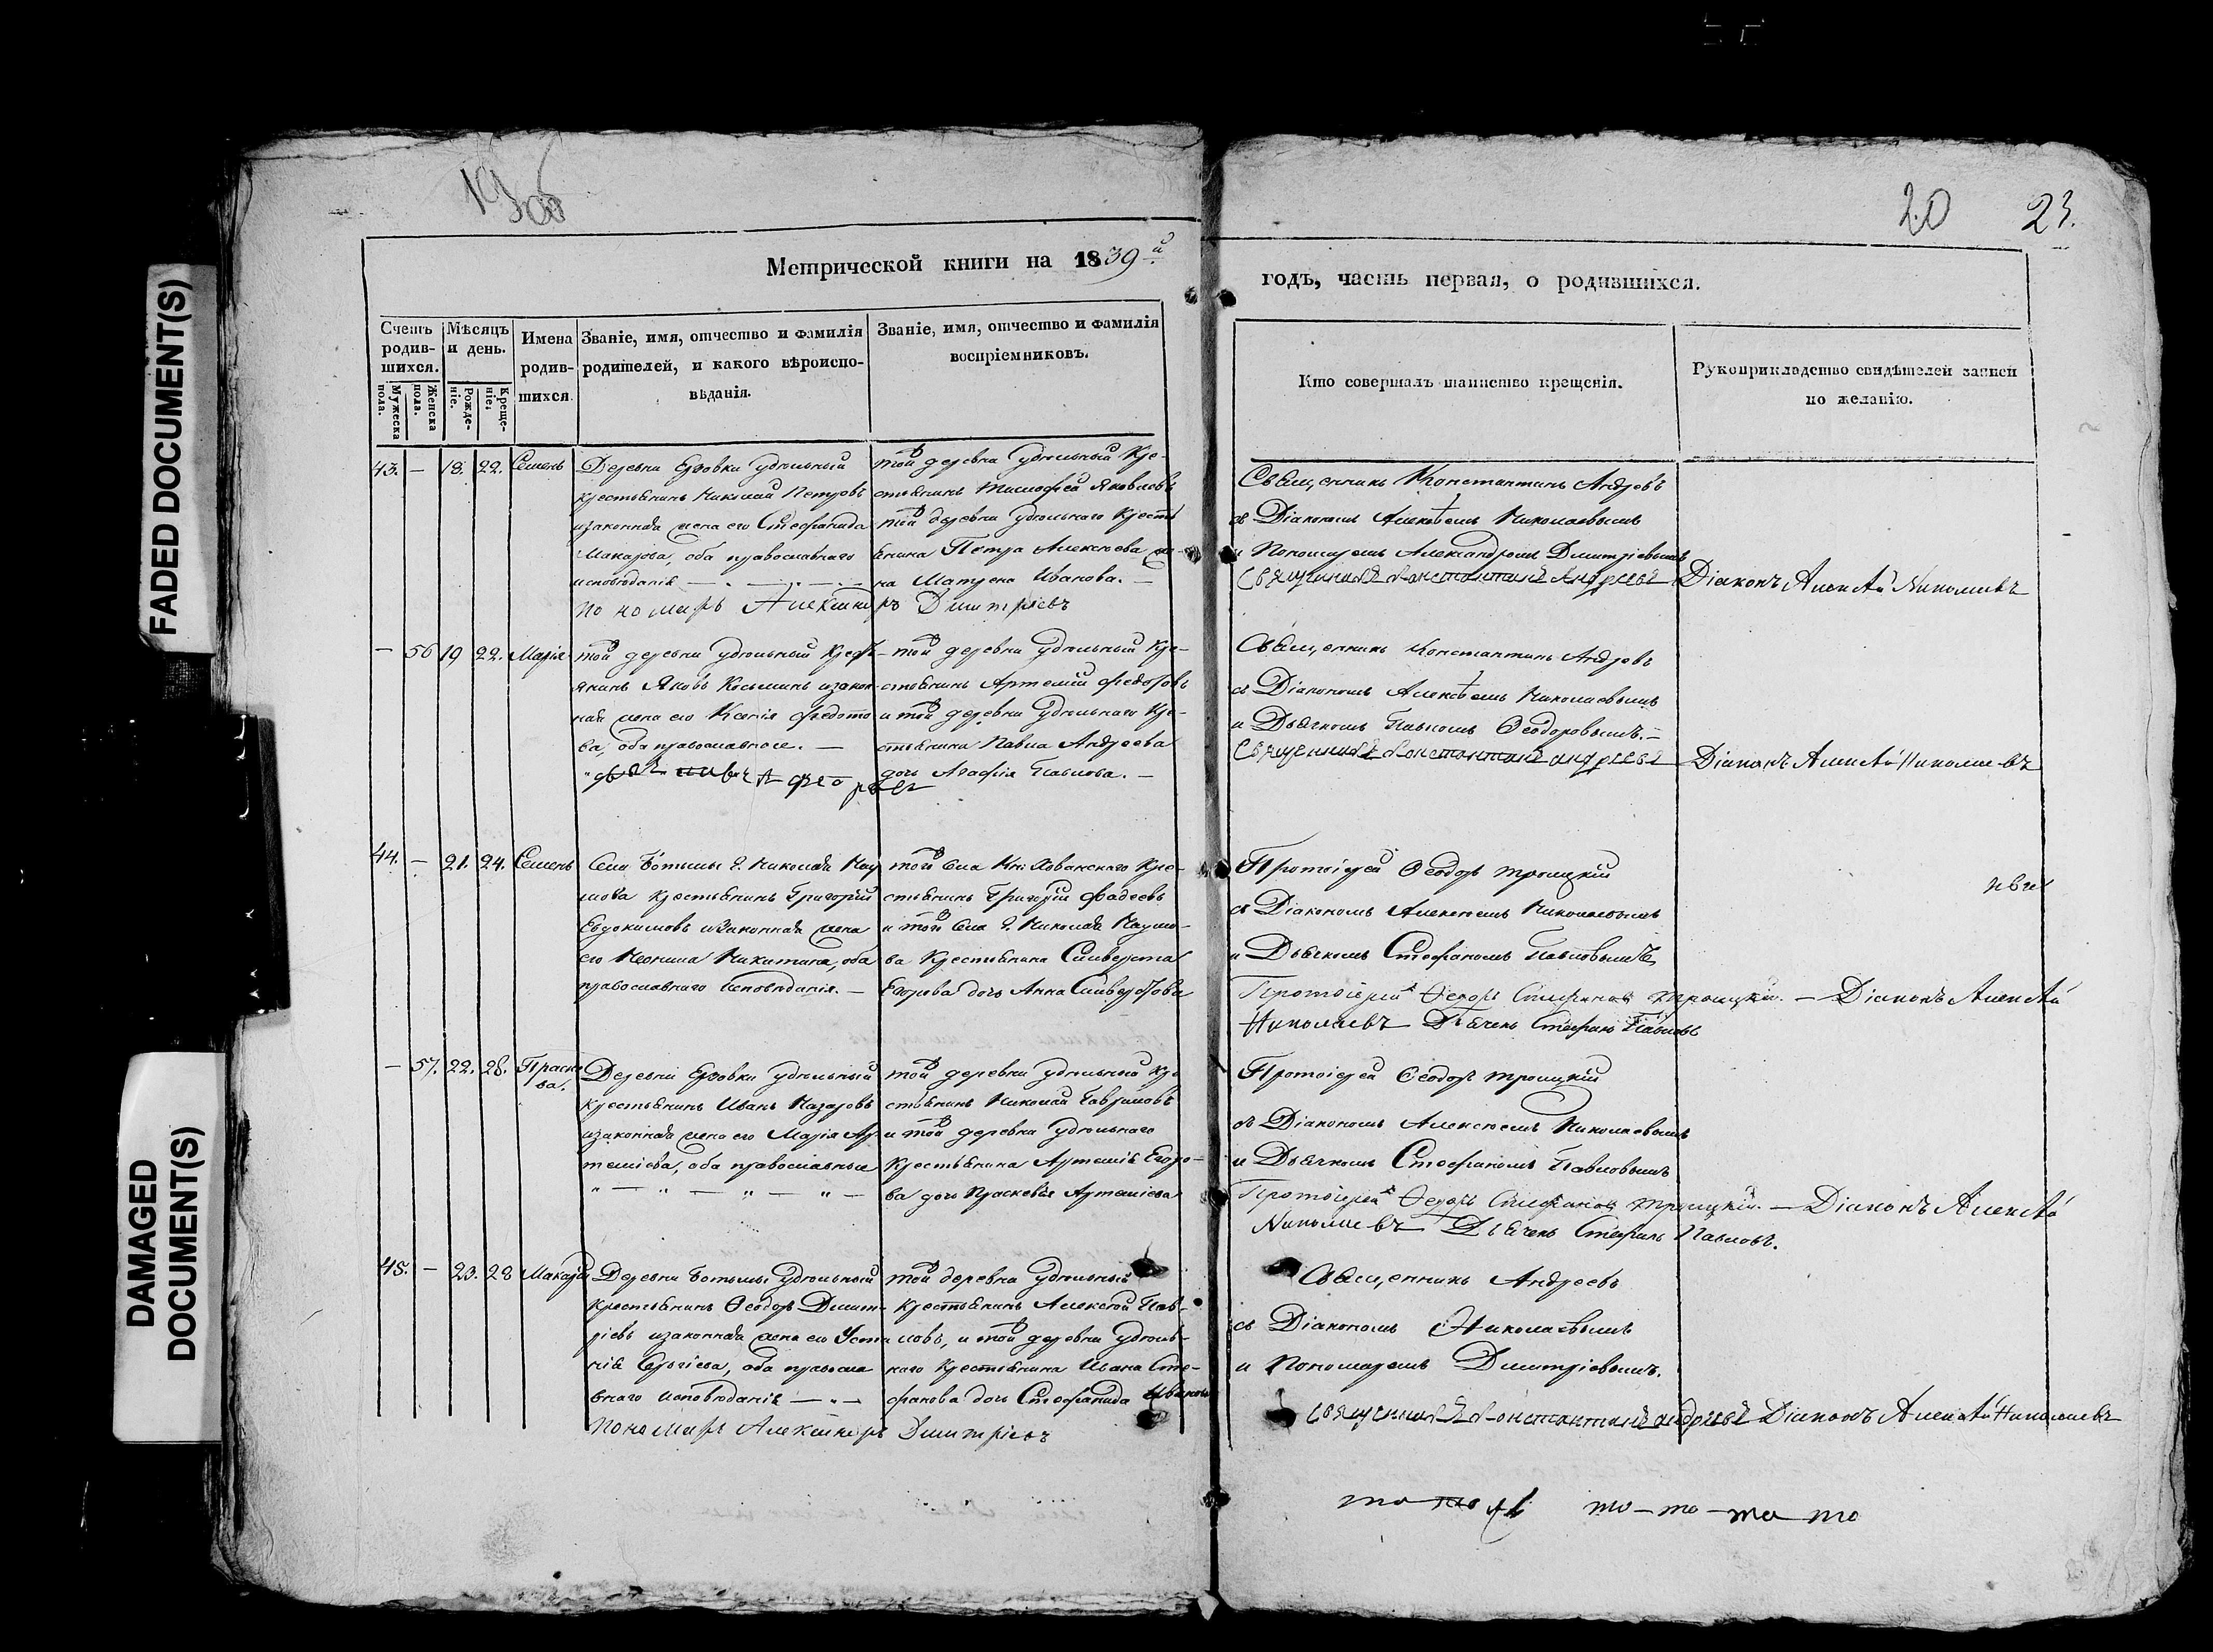 FADED DOCUMENT(S)
DAMAGED
DOCUMENT(S)
19 об
20 23.
Метрической книги на 1839й
годъ, часть первая, о родившихся.
Счетъ родив-шихся.
Мужеска пола.
Женска пола.
Мѣсяцъ и день.
Рожде-ніе.
Креще-ніе.
Имена родив-шихся.
Званіе, имя, отчество и фамилія
родителей, и какого вѣроиспо-
вѣданія.
Званіе, имя, отчество и фамилія
воспріемниковъ.
Кто совершалъ таинство крещенія.
Рукоприкладство свидѣтелей записи
по желанію.
43. — 18. 22. Семенъ
Деревни Ерзовки удѣльный
крестьянинъ Николай Петровъ
изаконная жена его Стефанида
Макарова, оба православнаго
исповѣданія
той деревни удѣльный Кре-
стьянинъ Тимофей Яковлевъ
той деревни удѣльнаго Кресть
янина Петра Алексѣева же-
на Матрена Иванова. —
Пономарь Александръ Дмитріевъ
Священникъ Константинъ Андреевъ
съ Діакономъ Алексѣемъ Николаевымъ
и Пономаремъ Александромъ Дмитріевымъ
Священникъ Константинъ Андреевъ
Діаконъ Алексѣй Николаевъ
— 56 19 22. Марія
той деревни удѣльный Кресть-
янинъ Яковъ Косьминъ изакон
ная жена его Ксенія Федото
ва, оба православные. —
той деревни удѣльный Кре-
стьянинъ Артемій Федоровъ
и той деревни удѣльнаго Кре-
стьянина Павла Андреева
дочь Агафія Павлова. —
Священникъ Константинъ Андреевъ
съ Діакономъ Алексѣемъ Николаевымъ
и Дьячкомъ Павломъ Ѳеодоровымъ. —
Священникъ Константинъ Андреевъ
Діаконъ Алексѣй Николаевъ
44. — 21. 24. Семенъ
Села Ботьмы Г. Николая Нау
мова крестьянинъ Григорій
Евдокимовъ изаконная жена
его Неонила Никитина, оба
православнаго Исповѣданія. —
того Села Кн: Хованскаго Кре-
стьянинъ Григорій Фадеевъ
и того Села Г. Николая Наумо-
ва Крестьянина Сильверста
Егорова дочь Анна Сильверстова
Протоіерей Ѳеодоръ Троицкій
съ Діакономъ Алексѣемъ Николаевымъ
и Дьячкомъ Стефаномъ Павловымъ
Протоіерей Ѳедоръ Стефановъ Троицкій. — Діаконъ Алексѣй
Николаевъ Дьячекъ Стефанъ Павловъ
— 57. 22. 28. Праско
ва.
Деревни Ерзовки удѣльный
Крестьянинъ Иванъ Назаровъ
изаконная жена его Марія Ар
теміева, оба православные
той деревни удѣльный Кре
стьянинъ Николай Гавриловъ
и той деревни удѣльнаго
Крестьянина Артемія Егоро-
ва дочь Прасковья Артеміева
Протоіерей Ѳеодоръ Троицкій
съ Діакономъ Алексѣемъ Николаевымъ
и Дьячкомъ Стефаномъ Павловымъ
Протоіерей Ѳедоръ Стефановъ Троицкій. — Діаконъ Алексѣй
Николаевъ Дьячекъ Стефанъ Павловъ.
45. — 23. 28 Макарій
Деревни Ботьмы удѣльный
Крестьянинъ Ѳеодоръ Дмит-
ріевъ изаконная жена его Усти
нія Сергіева, оба правосла
внаго исповѣданія
той деревни удѣльный
Крестьянинъ Алексѣй Пав-
ловъ, и той деревни удѣль-
наго Крестьянина Ивана Сте-
фанова дочь Стефанида Иванова
Пономарь Александръ Дмитріевъ
Священникъ Андреевъ
съ Діакономъ Николаевымъ
и Пономаремъ Дмитріевымъ.
Священникъ Константинъ Андреевъ Діаконъ Алексѣй Николаевъ
то — то — то то